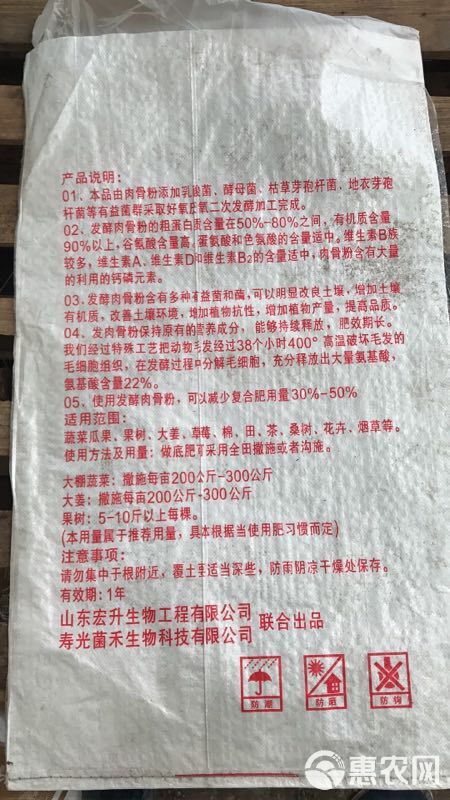 产品说明：
01、本品由肉骨粉添加乳酸菌、酵母菌、枯草芽孢杆菌、地衣芽孢
杆菌等有益菌群采取好氧厌氧二次发酵加工完成。
02、发酵肉骨粉的粗蛋白质含量在50%-80%之间，有机质含量
90%以上，谷氨酸含量高，蛋氨酸和色氨酸的含量适中。维生素B族
较多，维生素A、维生素D和维生素B₂的含量适中，肉骨粉含有大量
的利用的钙磷元素。
03、发酵肉骨粉含有多种有益菌和酶，可以明显改良土壤，增加土壤
有机质，改善土壤环境，增加植物抗性，增加植物产量，提高品质。
04、发肉骨粉保持原有的营养成分，能够持续释放，肥效期长。
我们经过特殊工艺把动物毛发经过38个小时400°高温破坏毛发的
毛细胞组织，在发酵过程中分解毛细胞，充分释放出大量氨基酸，
氨基酸含量22%。
05、使用发酵肉骨粉，可以减少复合肥用量30%-50%
适用范围：
蔬菜瓜果、果树、大姜、草莓、棉、田、茶、桑树、花卉、烟草等。
使用方法及用量：做底肥可采用全田撒施或者沟施。
大棚蔬菜：撒施每亩200公斤-300公斤
大姜：撒施每亩200公斤-300公斤
果树：5-10斤以上每棵。
(本用量属于推荐用量，具本根据当使用肥习惯而定)
注意事项：
请勿集中于根附近，覆土要适当深些，防雨阴凉干燥处保存。
有效期：1年
山东宏升生物工程有限公司
寿光菌禾生物科技有限公司
联合出品
防潮
防晒
防钩
惠农网